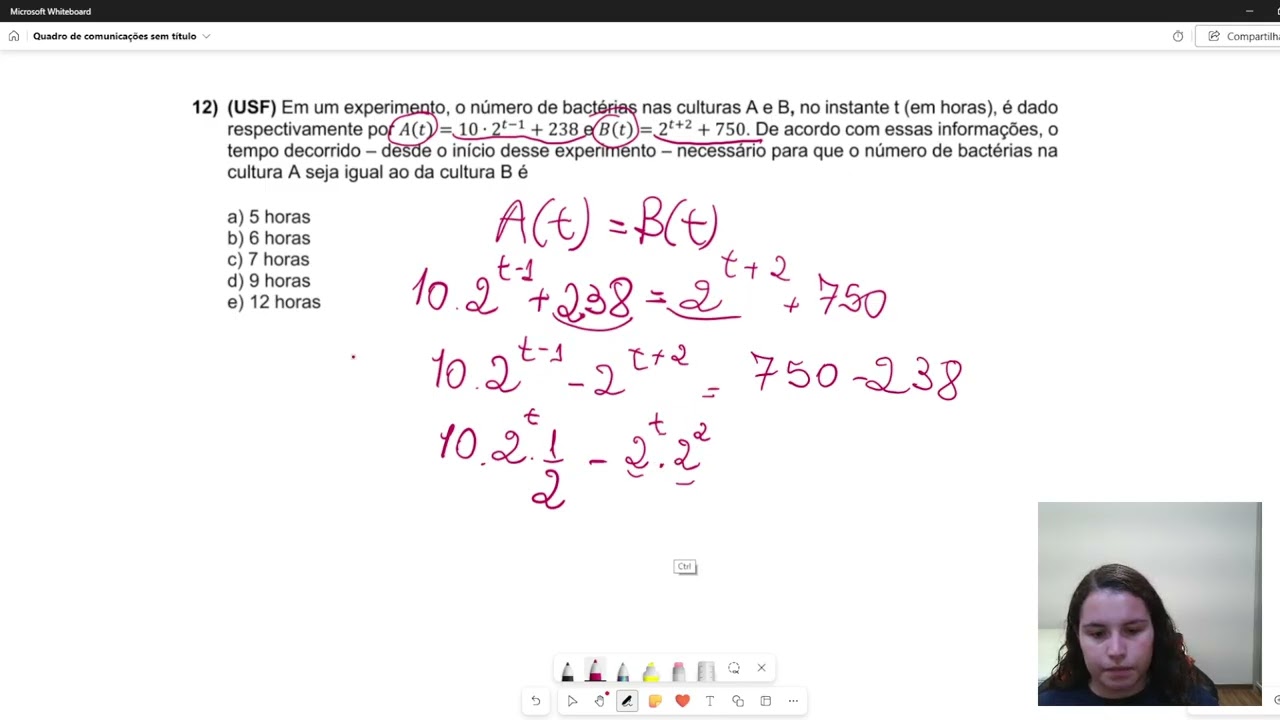 Microsoft Whiteboard
Quadro de comunicações sem título
Compartilha
12) (USF) Em um experimento, o número de bactérias nas culturas A e B, no instante t (em horas), é dado
respectivamente por A(t) = 10 · 2^{t−1} + 238 e B(t) = 2^{t+2} + 750. De acordo com essas informações, o
tempo decorrido – desde o início desse experimento – necessário para que o número de bactérias na
cultura A seja igual ao da cultura B é
a) 5 horas
b) 6 horas
c) 7 horas
d) 9 horas
e) 12 horas
A(t) = B(t)
10.2^{t-1} + 238 = 2^{t+2} + 750
10.2^{t-1} - 2^{t+2} = 750 - 238
10.2^t . 1/2 - 2^t . 2^2
Ctrl